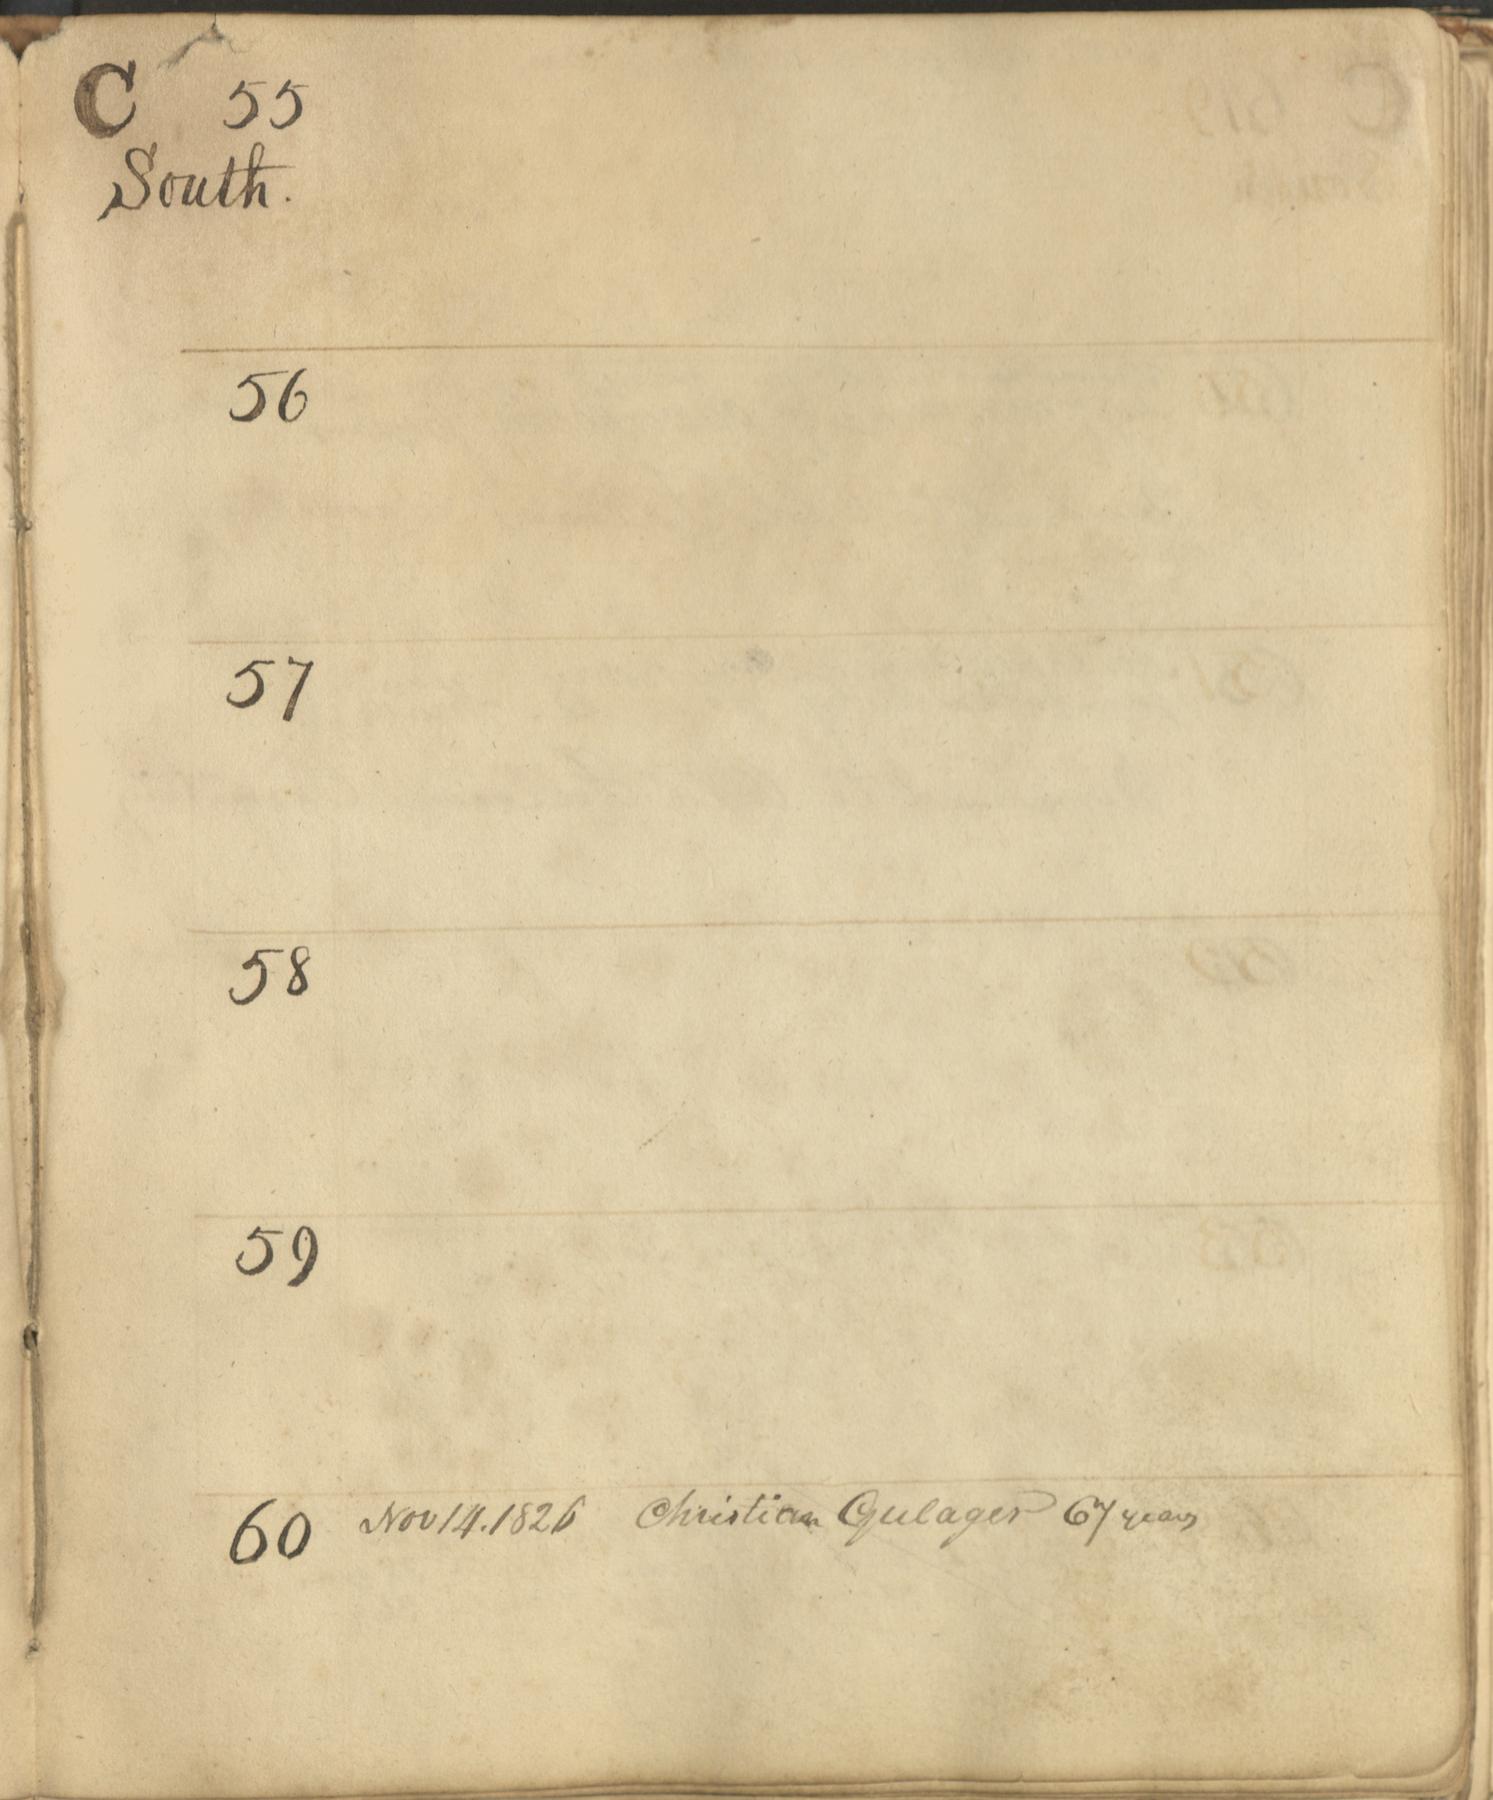 C 55
South.
56
57
58
59
60 Nov 14. 1826 Christian Gulager 67 years